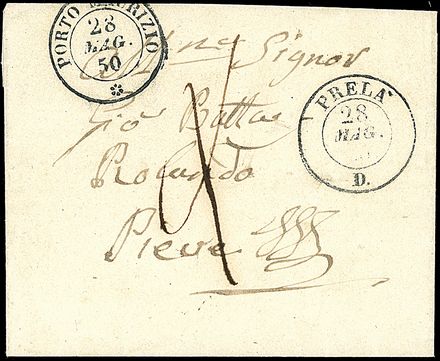 PORTO MAURIZIO
28
MAG.
50
PRELA'
28
MAG.
D.
Signor
Gio Batta
Rolando
Pieve